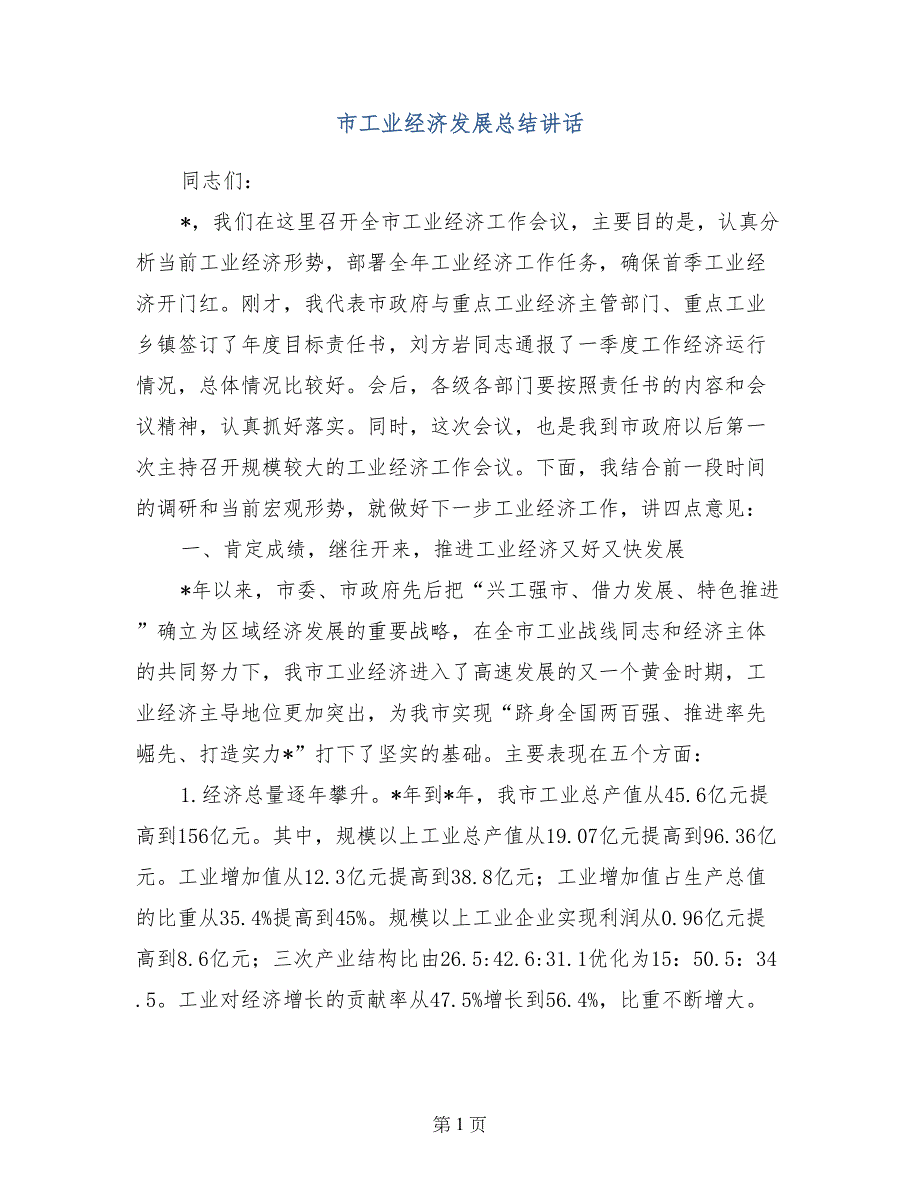 市工业经济发展总结讲话
同志们：
*，我们在这里召开全市工业经济工作会议，主要目的是，认真分
析当前工业经济形势，部署全年工业经济工作任务，确保首季工业经
济开门红。刚才，我代表市政府与重点工业经济主管部门、重点工业
乡镇签订了年度目标责任书，刘方岩同志通报了一季度工作经济运行
情况，总体情况比较好。会后，各级各部门要按照责任书的内容和会
议精神，认真抓好落实。同时，这次会议，也是我到市政府以后第一
次主持召开规模较大的工业经济工作会议。下面，我结合前一段时间
的调研和当前宏观形势，就做好下一步工业经济工作，讲四点意见：
一、肯定成绩，继往开来，推进工业经济又好又快发展
*年以来，市委、市政府先后把“兴工强市、借力发展、特色推进
”确立为区域经济发展的重要战略，在全市工业战线同志和经济主体
的共同努力下，我市工业经济进入了高速发展的又一个黄金时期，工
业经济主导地位更加突出，为我市实现“跻身全国两百强、推进率先
崛先、打造实力*”打下了坚实的基础。主要表现在五个方面：
1.经济总量逐年攀升。*年到*年，我市工业总产值从45.6亿元提
高到156亿元。其中，规模以上工业总产值从19.07亿元提高到96.36亿
元。工业增加值从12.3亿元提高到38.8亿元；工业增加值占生产总值
的比重从35.4%提高到45%。规模以上工业企业实现利润从0.96亿元提
高到8.6亿元；三次产业结构比由26.5:42.6:31.1优化为15：50.5：34
.5。工业对经济增长的贡献率从47.5%增长到56.4%，比重不断增大。
第 1 页